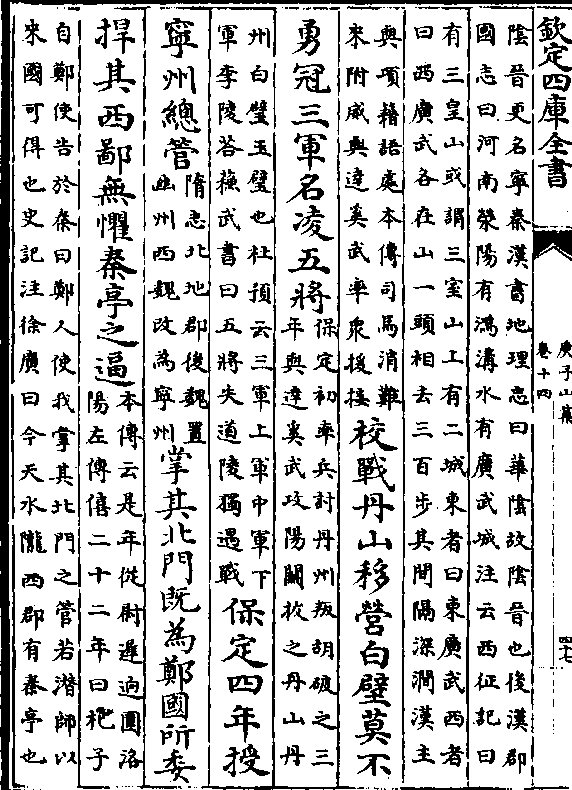 欽定四庫全書
庾子山集
卷十四
四七
陰晉更名寧秦漢書地理志曰華陰故陰晉也後漢郡
國志曰河南滎陽有鴻溝水有廣武城注云西征記曰
有三皇山或謂三室山上有二城東者曰東廣武西者
曰西廣武各在山一頭相去三百步其間隔深澗漢主
與項籍語處本傳司馬消難
來附威與達奚武率衆援接
校戰丹山移營白壁莫不
勇冠三軍名凌五將
保定初率兵討丹州叛胡破之三
年與達奚武攻陽關拔之丹山丹
州白璧玉璧也杜預云三軍上軍中軍下
軍李陵荅蘇武書曰五將失道陵獨遇戰
保定四年授
寧州總管
隋志北地郡後魏置
豳州西魏改為寧州
掌其北門既為鄭國所委
捍其西鄙無懼秦亭之逼
本傳云是年從尉遲逈圍洛
陽左傳僖二十二年曰杞子
自鄭使告於秦曰鄭人使我掌其北門之管若潛師以
來國可得也史記注徐廣曰今天水隴西郡有秦亭也